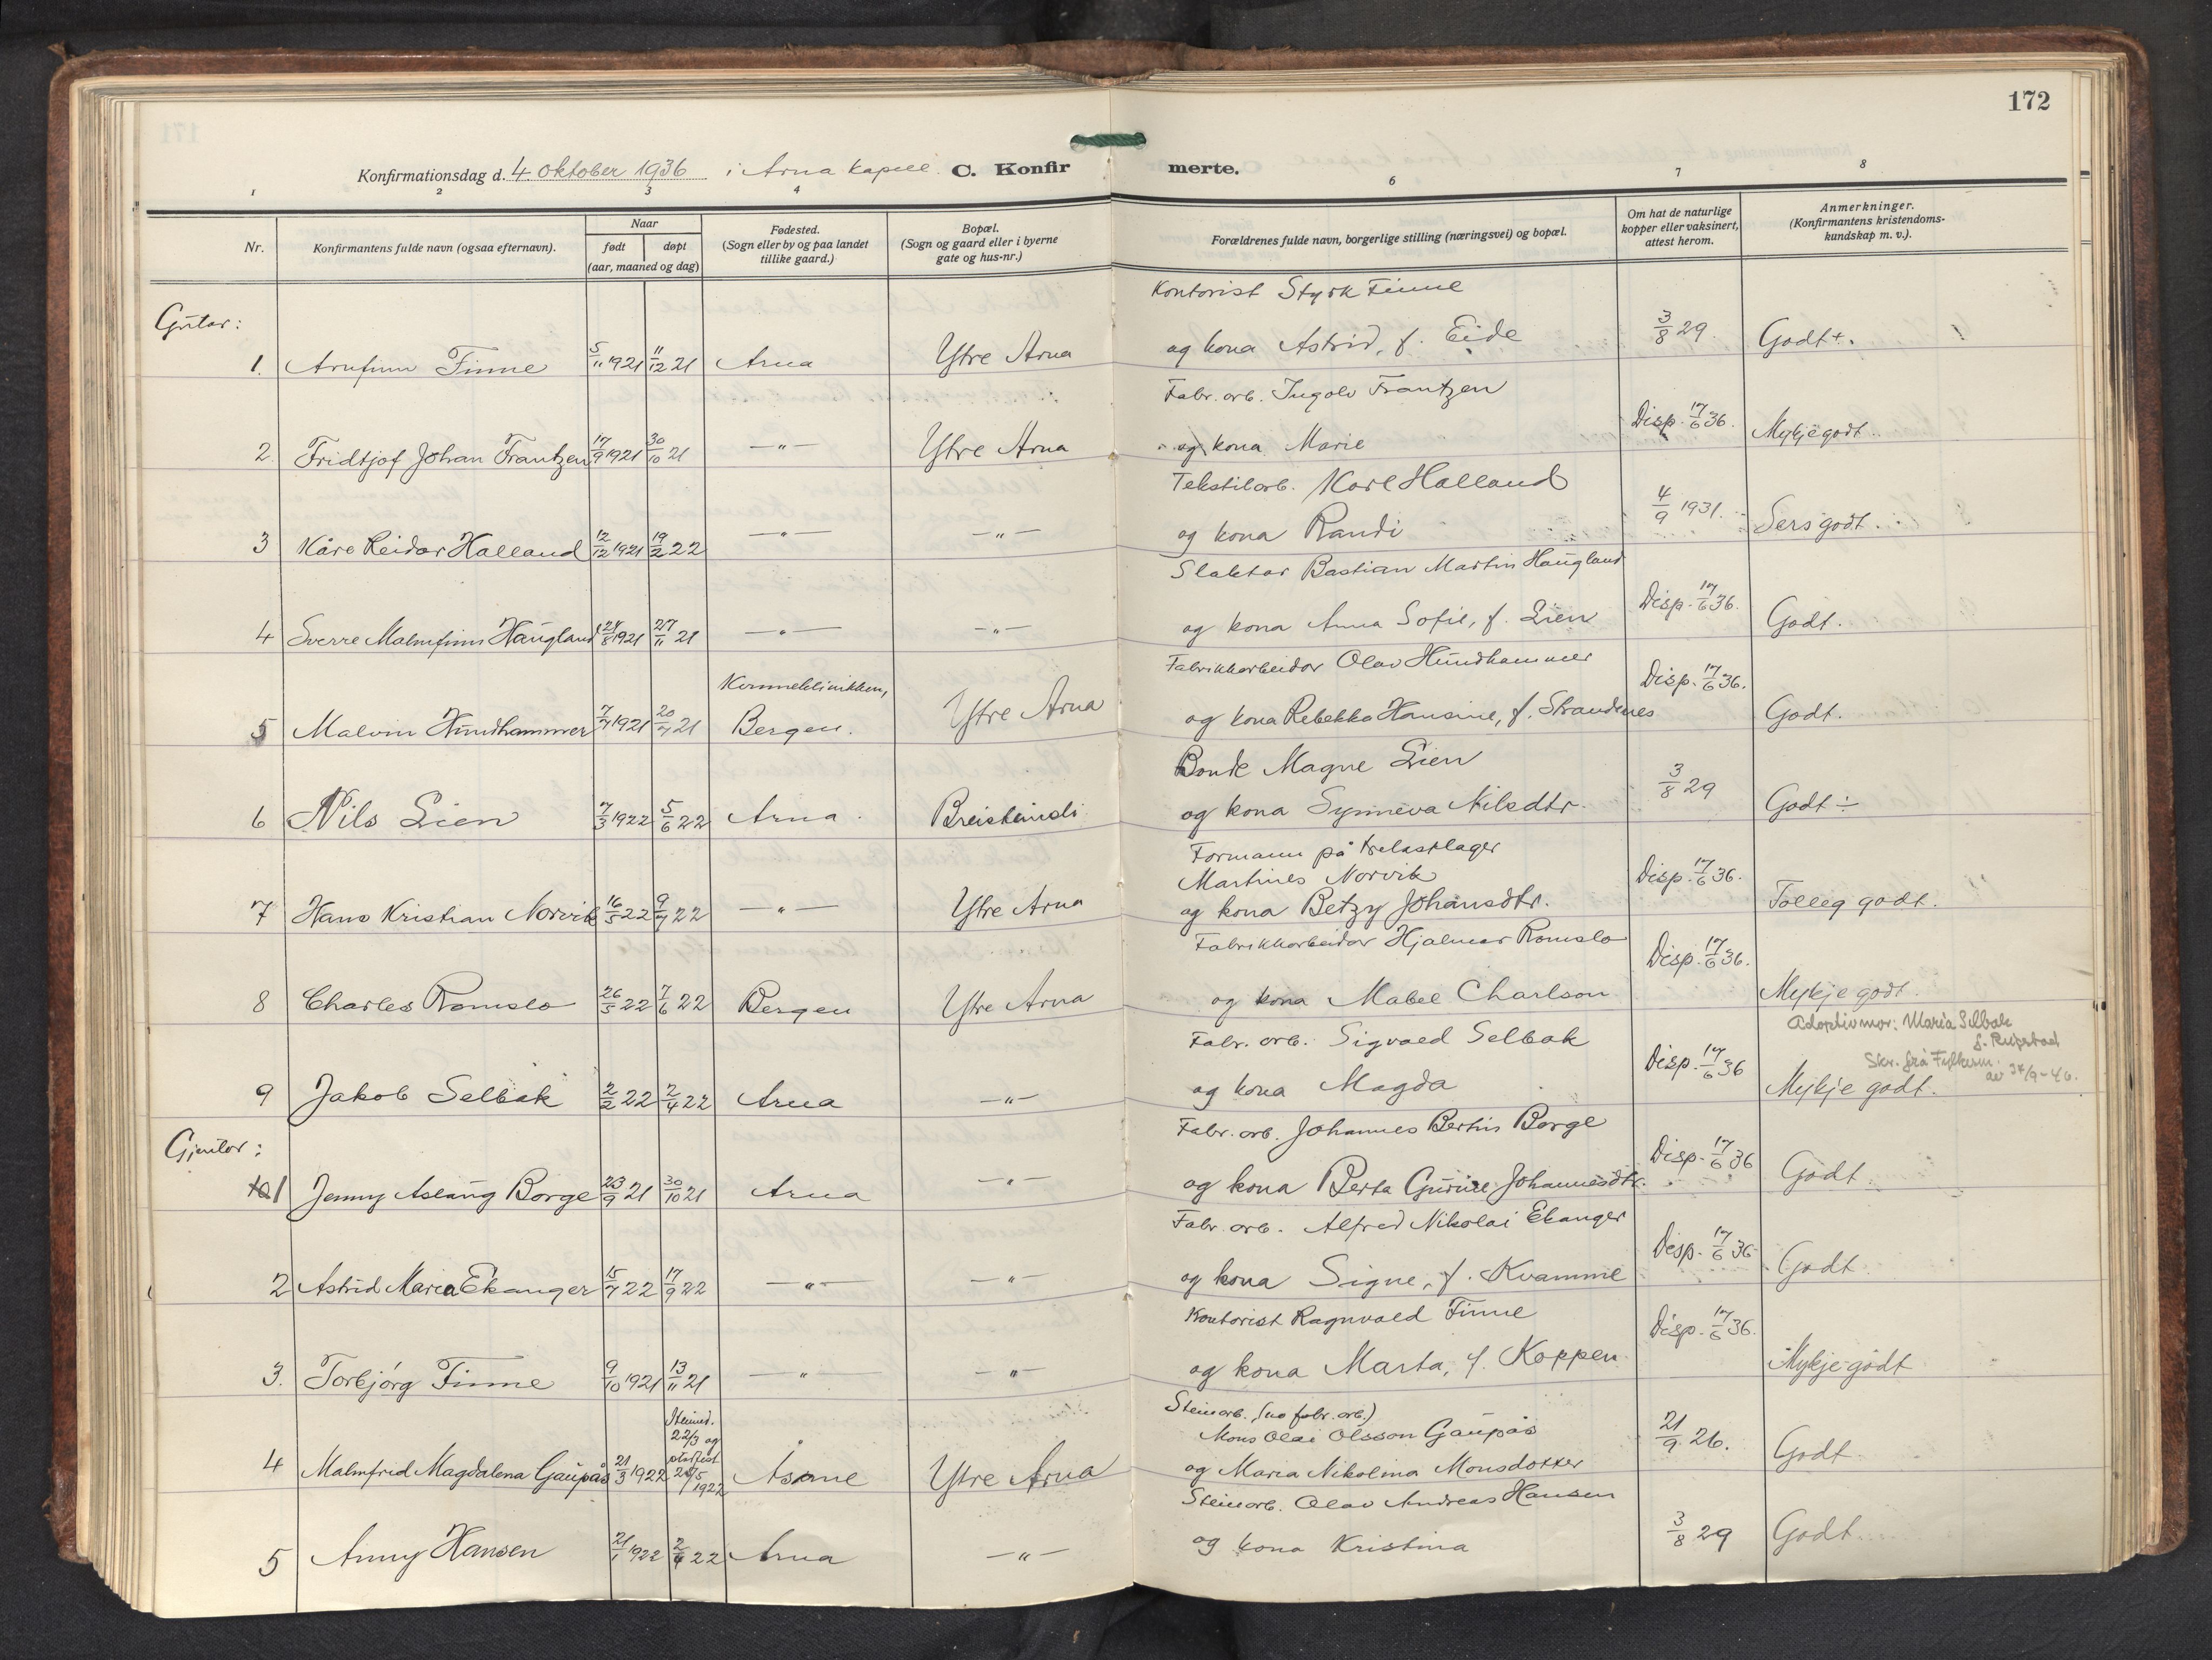 172
Konfirmationsdag d. 4. oktober 1936 i Arna kapell C. Konfirmerte.
1 2 3 4 6 7 8
Nr.
Konfirmantens fulde navn (ogsaa efternavn).
Naar
født døpt
(aar, maaned og dag)
Fødested.
(Sogn eller by og paa landet
tillike gaard.)
Bopæl.
(Sogn og gaard eller i byerne
gate og hus-nr.)
Forældrenes fulde navn, borgerlige stilling (næringsvei) og bopæl.
Om hat de naturlige
kopper eller vaksinert,
attest herom.
Anmerkninger.
(Konfirmantens kristendoms-
kundskap m. v.).
Gutar:
Kontorist Styrk Finne
1. Arnfinn Finne 5/11 1921 11/12 21 Arna Ytre Arna og kona Astrid, f. Eide 3/8 29. Godt+.
Fabr. arb. Ingolv Frantzen
2. Fridtjof Johan Frantzen 17/9 1921 30/10 21 —"— Ytre Arna og kona Marie Disp. 17/6 36. Mykje godt.
Tekstilarb. Karl Halland
3 Kåre Reidar Halland 12/12 1921 19/2 22 —"— —"— og kona Randi 4/9 1931. Sers godt.
Slaktar Bastian Martin Haugland
4 Sverre Malmfinn Haugland 24/8 1921 27/11 21 —"— —"— og kona Anna Sofie, f. Lien Disp. 17/6 36. Godt.
Fabrikkarbeidar Olav Hundhammer
5 Malvin Hundhammer 7/7 1921 20/7 21 Kvinneklinikken, Bergen. Ytre Arna og kona Rebekka Hansine, f. Strandenes Disp. 17/6 36. Godt.
Bonde Magne Lien
6 Nils Lien 7/3 1922 5/6 22 Arna. Breisteindi og kona Synneva Nilsdtr. 3/8 29 Godt ÷
Formann på trelastlager
Martines Norvik
7 Hans Kristian Norvik 16/5 22 9/7 22 —"— Ytre Arna og kona Betzy Johansdtr. Disp. 17/6 36. Tolleg godt.
Fabrikkarbeidar Hjalmar Romslo
8 Charles Romslo 26/5 22 7/6 22 Bergen Ytre Arna og kona Mabel Charlson Disp. 17/6 36. Mykje godt.
Adoptivmor: Maria Selbak
Skr. frå Fylkesm.
Fabr. arb. Sigvald Selbak
9 Jakob Selbak 2/2 22 2/4 22 Arna —"— og kona Magda Disp. 17/6 36 Mykje godt.
Gjentor:
Fabr. arb. Johannes Bertin Borge
1 Jenny Aslaug Borge 23/9 21 30/10 21 Arna —"— og kona Berta Gurine Johannesdtr. Disp. 17/6 36 Godt
Fabr. arb. Alfred Nikolai Ekanger
2 Astrid Maria Ekanger 15/7 22 17/9 22 —"— —"— og kona Signe, f. Kvamme Disp. 17/6 36 Godt
Kontorist Ragnvald Finne
3. Torbjørg Finne 9/10 1921 13/11 21 —"— —"— og kona Marta, f. Koppen Disp. 17/6 36. Mykje godt
Steinarb. (no fabr. arb.)
Mons Olai Olsson Gaupås
4 Malmfrid Magdalena Gaupås 21/3 1922 Heimed. 22/3 og stadfest 28/5 1922 Åsane Ytre Arna og Maria Nikolina Monsdotter 21/9 26. Godt
Steinarb. Olav Andreas Hansen
5 Anny Hansen 21/1 1922 2/4 22 Arna —"— og kona Kristina 3/8 29 Godt